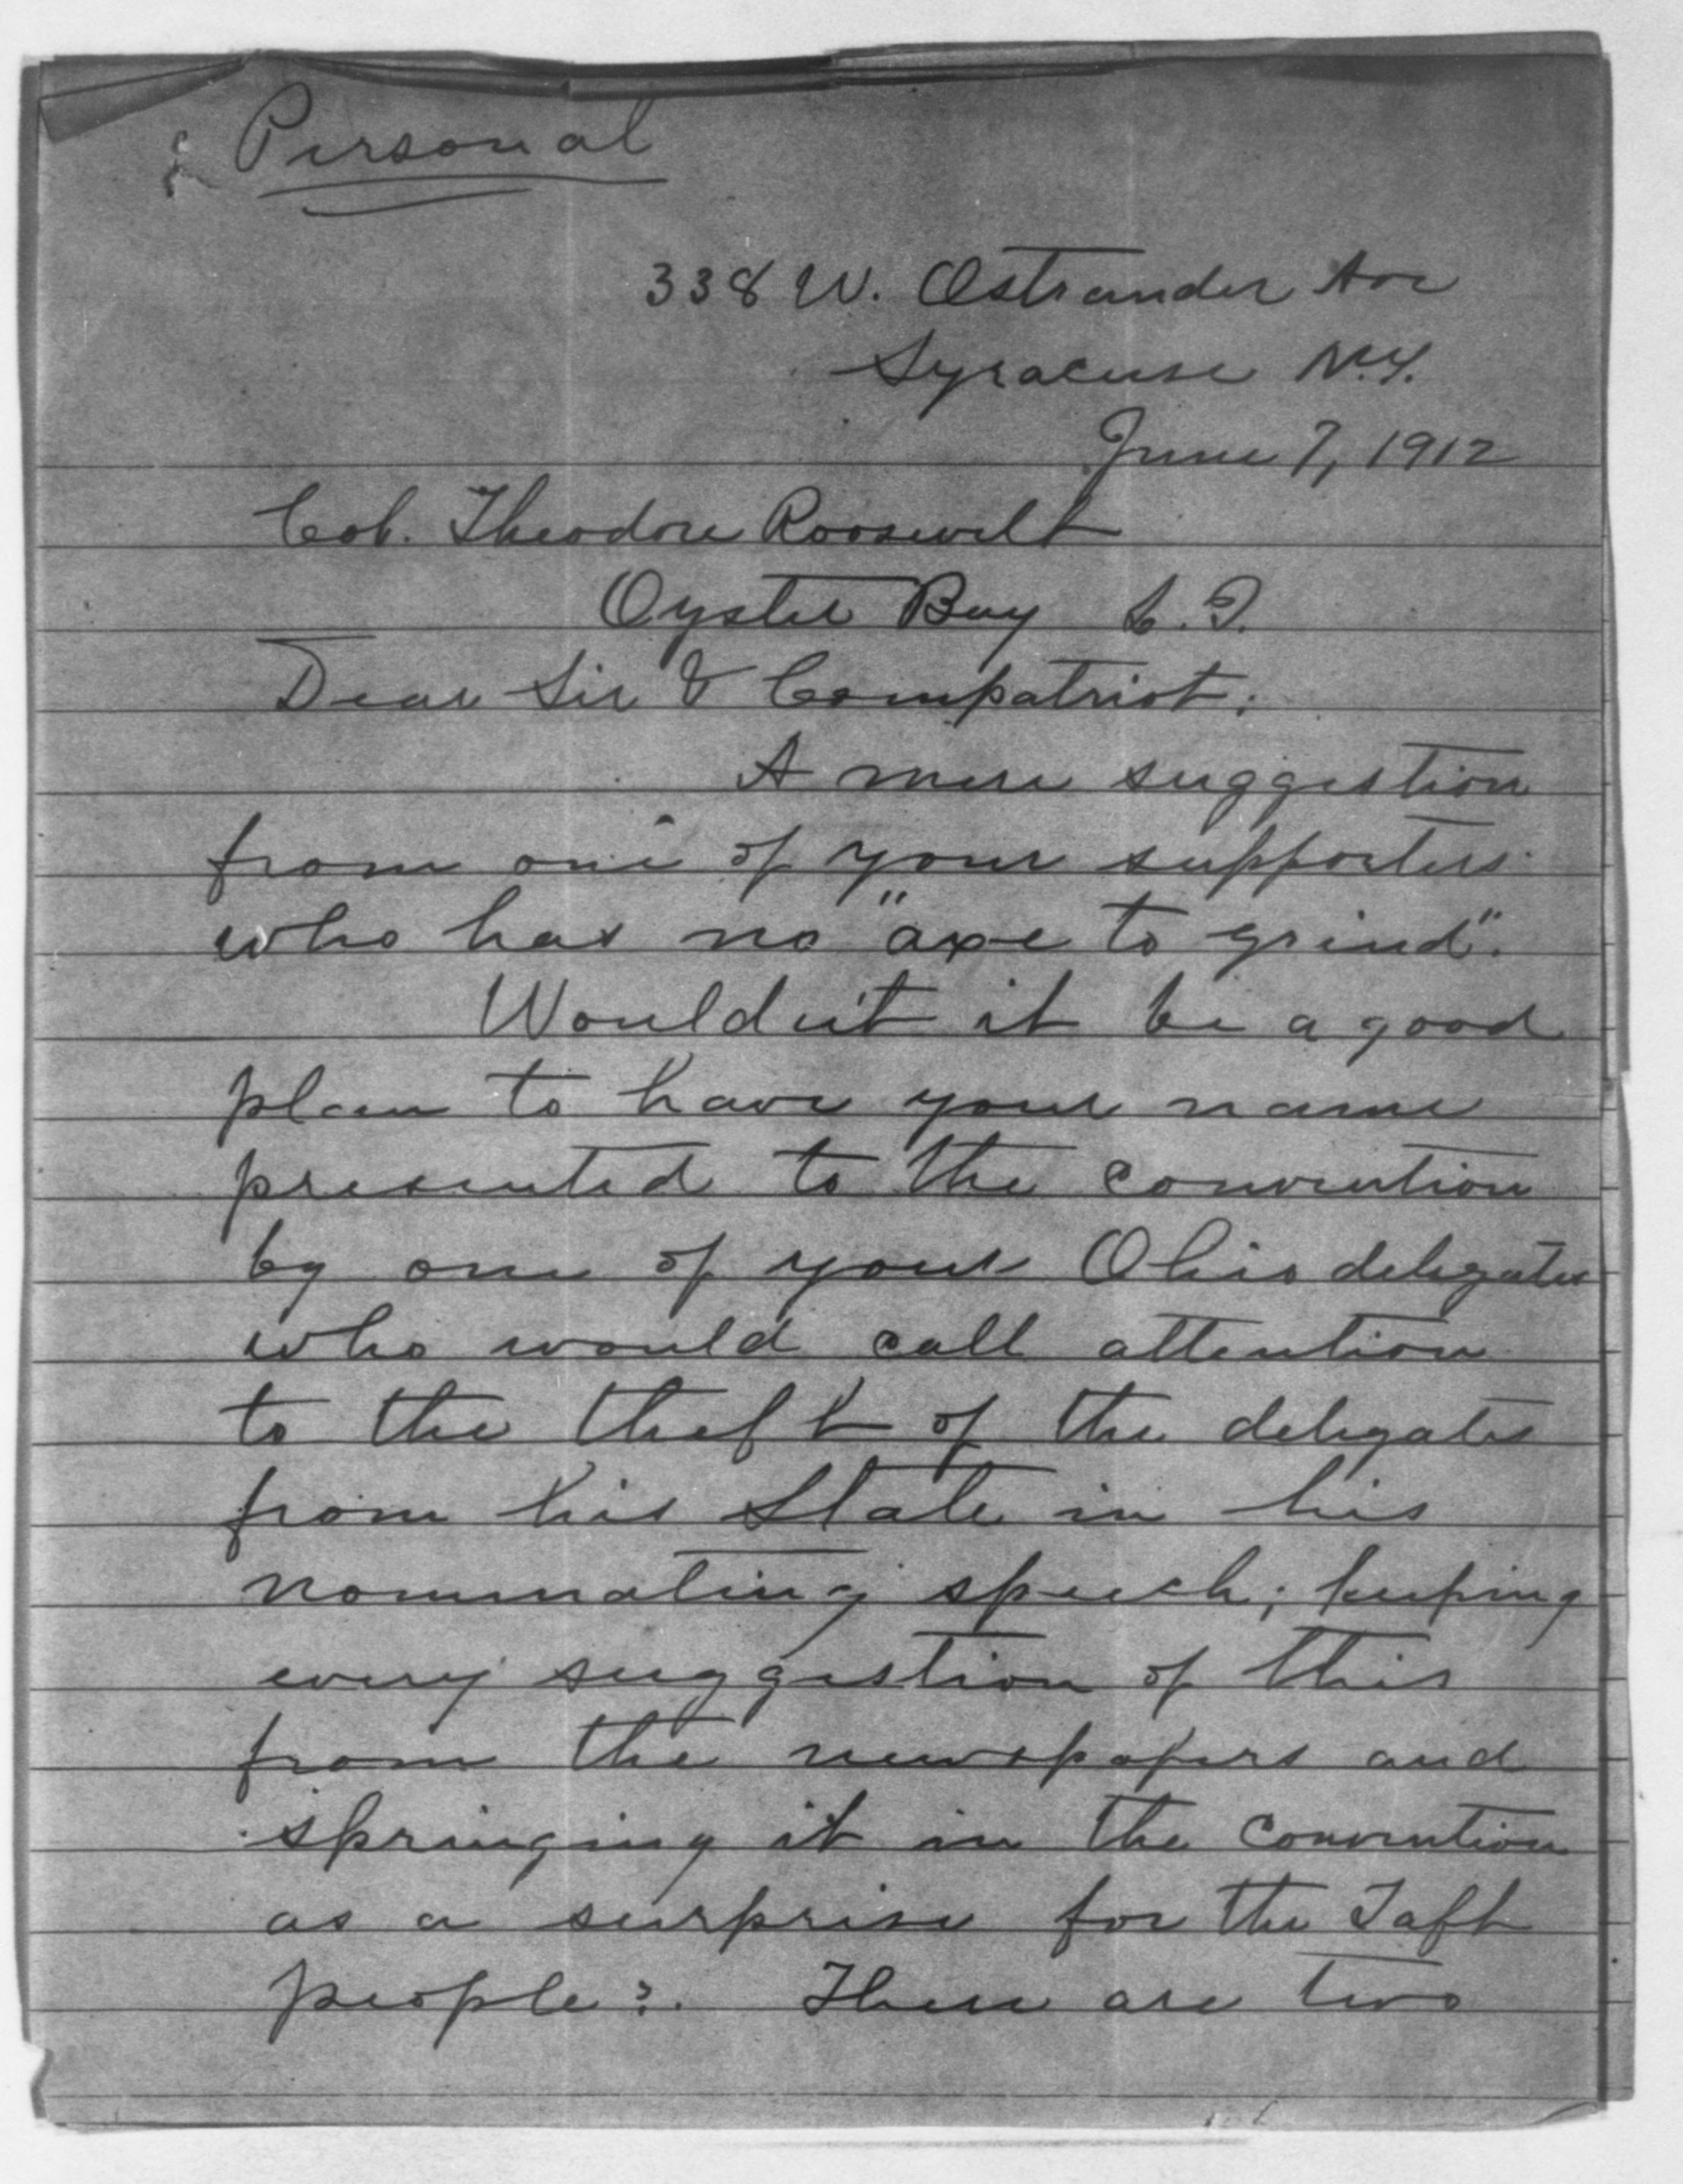 Personal
338 W. Ostrander Ave
Syracuse N.Y.
June 7, 1912
Col. Theodore Roosevelt
Oyster Bay L.I.
Dear Sir & Compatriot:
A mere suggestion
from one of your supporters
who has no "axe to grind".
Wouldn't it be a good
plan to have your name
presented to the convention
by one of your Ohio delegates
who would call attention
to the theft of the delegates
from his State in his
nominating speech; keeping
every suggestion of this
from the newspapers and
springing it in the convention
as a surprise for the Taft
people?. There are two